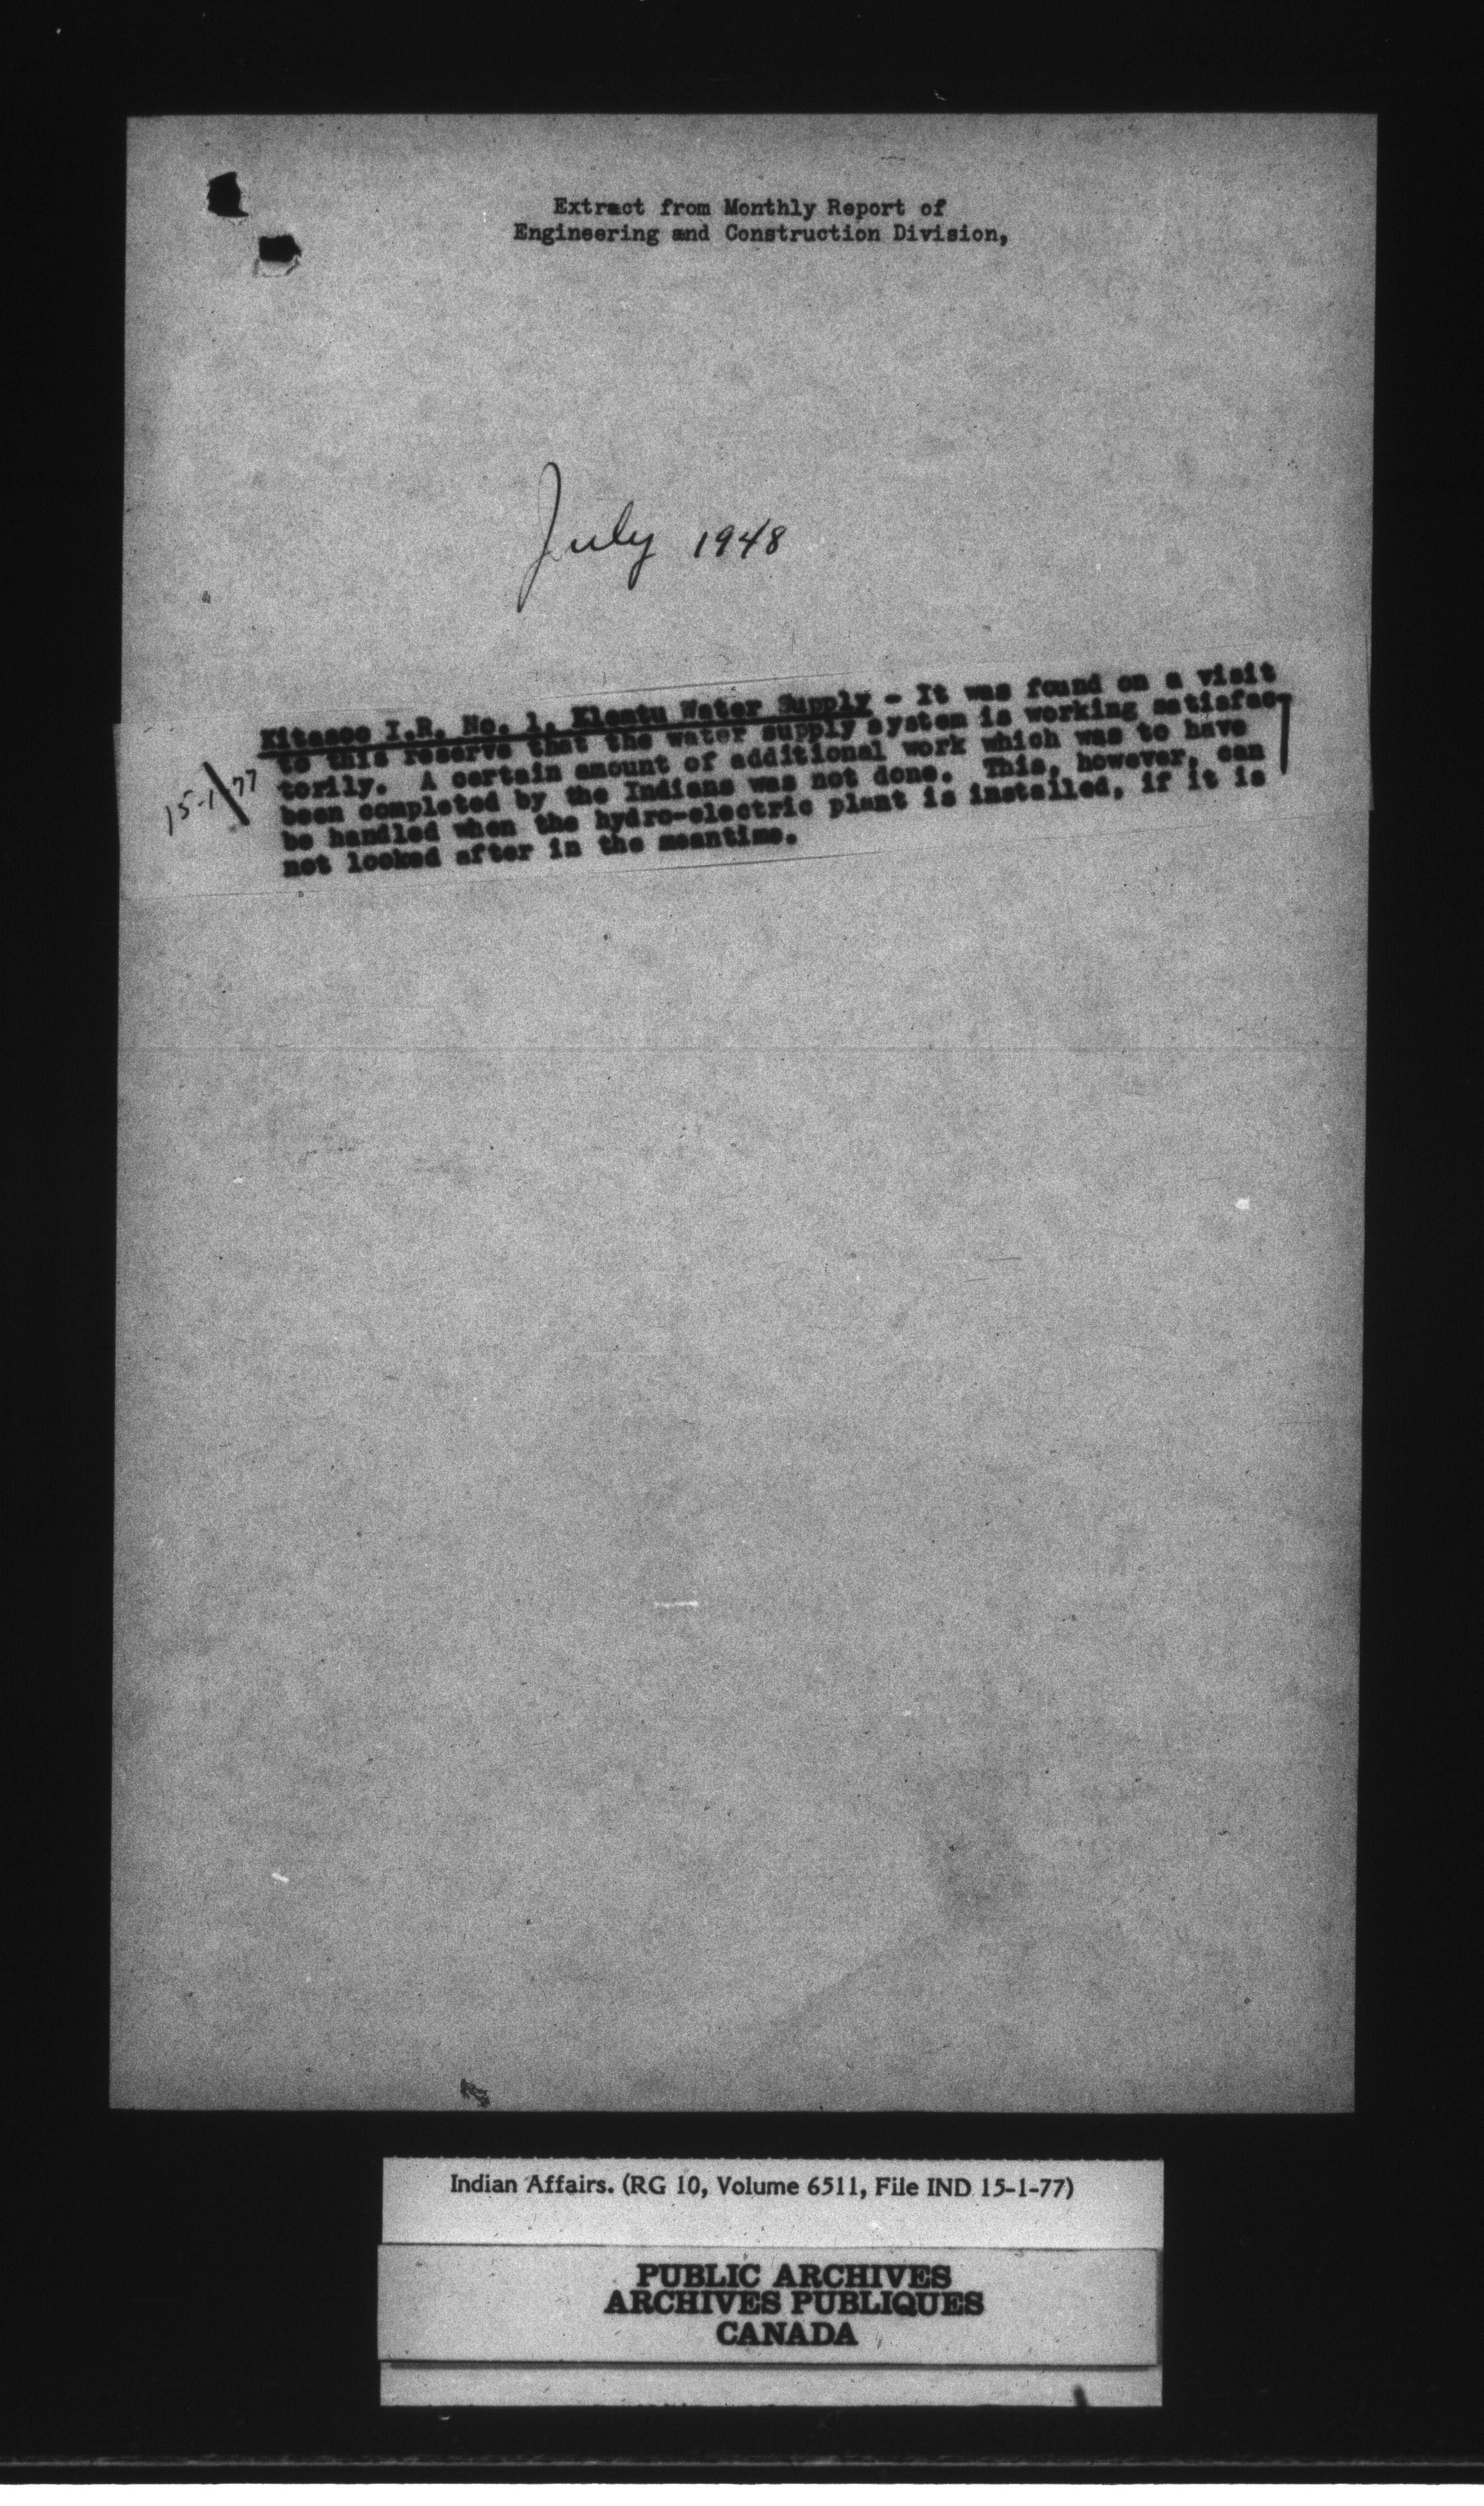 Extract from Monthly Report of
Engineering and Construction Division,
July 1948
Kitasoo I.R. No. 1, Klemtu Water Supply - It was found on a visit
to this reserve that the water supply system is working satisfac-
torily. A certain amount of additional work which was to have
been completed by the Indians was not done. This, however, can
be handled when the hydro-electric plant is installed, if it is
not looked after in the meantime.
15-1-77
Indian Affairs. (RG 10, Volume 6511, File IND 15-1-77)
PUBLIC ARCHIVES
ARCHIVES PUBLIQUES
CANADA